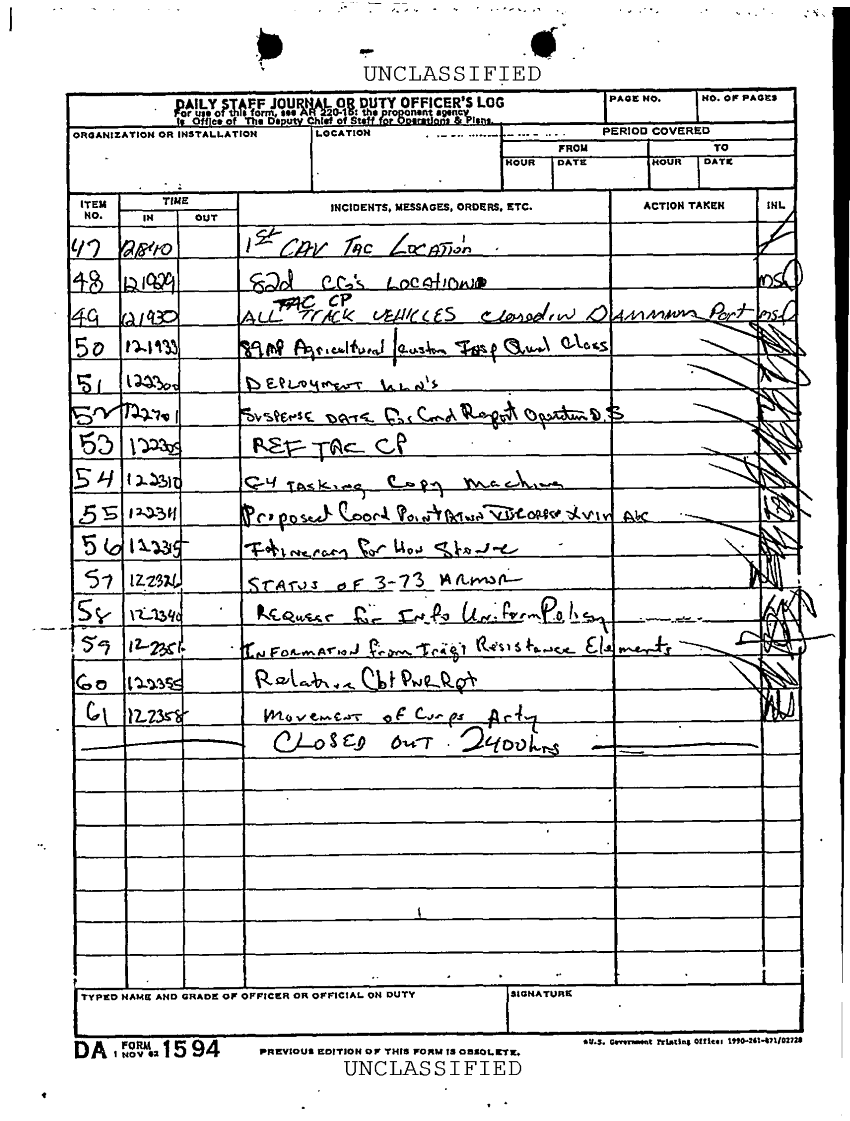 UNCLASSIFIED
DAILY STAFF JOURNAL OR DUTY OFFICER'S LOG
For use of this form, see AR 220-15: the proponent agency
is Office of The Deputy Chief of Staff for Operations & Plans.
PAGE NO. NO. OF PAGES
ORGANIZATION OR INSTALLATION LOCATION PERIOD COVERED
FROM TO
HOUR DATE HOUR DATE
ITEM NO. TIME INCIDENTS, MESSAGES, ORDERS, ETC. ACTION TAKEN INL
IN OUT
47 1st CAV TAC LOCATION
48 121929 82d CG's LOCATION
TAC CP
49 121930 ALL TRACK VEHICLES closed in DAMMAM Port
50 121933 89 MP Agricultural / Custom Insp Qual Class
51 122300 DEPLOYMENT
52 SUSPENSE DATE for Cmd Report Operation D.S
53 122305 REF TAC CP
54 122310 G-4 TASKING Copy Machine
55 122311 Proposed Coord Point BTWN VII CORPS XVIII ABC
56 122315 Itinerary for Hon Stone
57 122326 STATUS OF 3-73 ARMOR
58 122340 REQUEST for Info Uniform Policy
59 122351 INFORMATION from Iraqi Resistance Elements
60 122355 Relative Cbt PWR Rpt
61 122358 Movement of Corps Arty
CLOSED OUT 2400hrs
TYPED NAME AND GRADE OF OFFICER OR OFFICIAL ON DUTY SIGNATURE
DA FORM 1 NOV 62 1594 PREVIOUS EDITION OF THIS FORM IS OBSOLETE.
*U.S. Government Printing Office: 1990-261-871/02728
UNCLASSIFIED